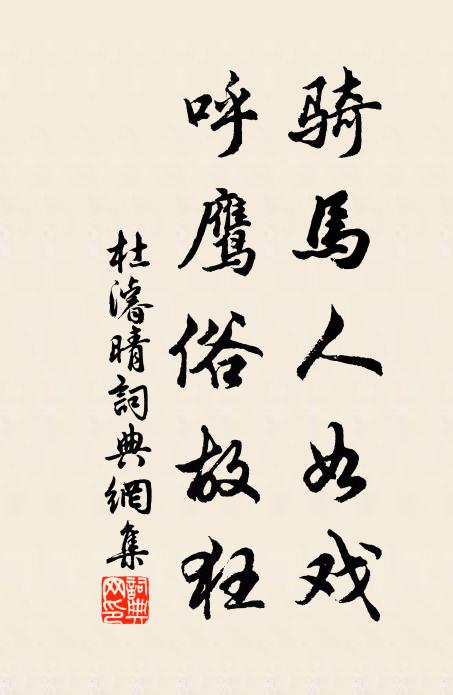 骑馬人如戏
呼鹰俗故狂
杜濬晴詞典網集
詞典网印